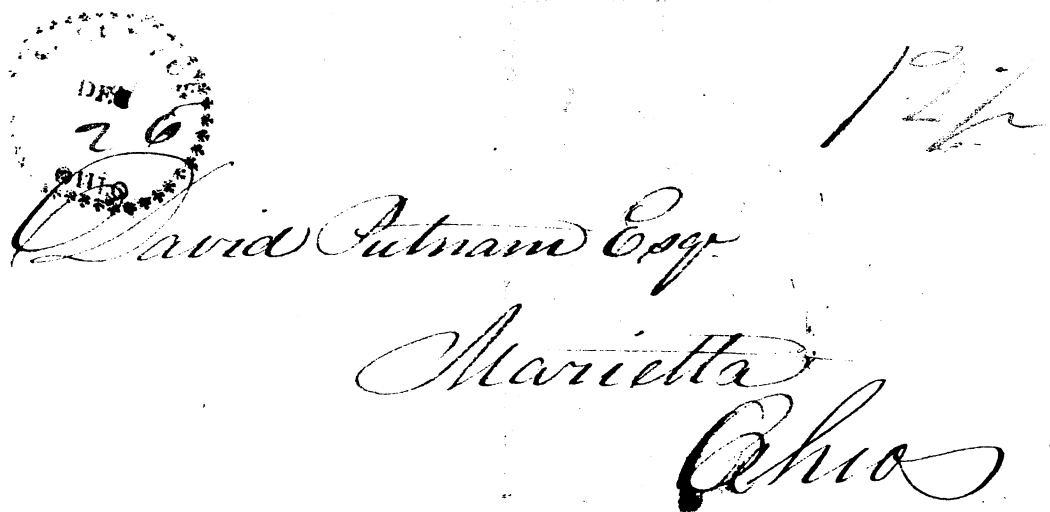 DEC
26
OHIO
12½
David Putnam Esqr.
Marietta
Ohio